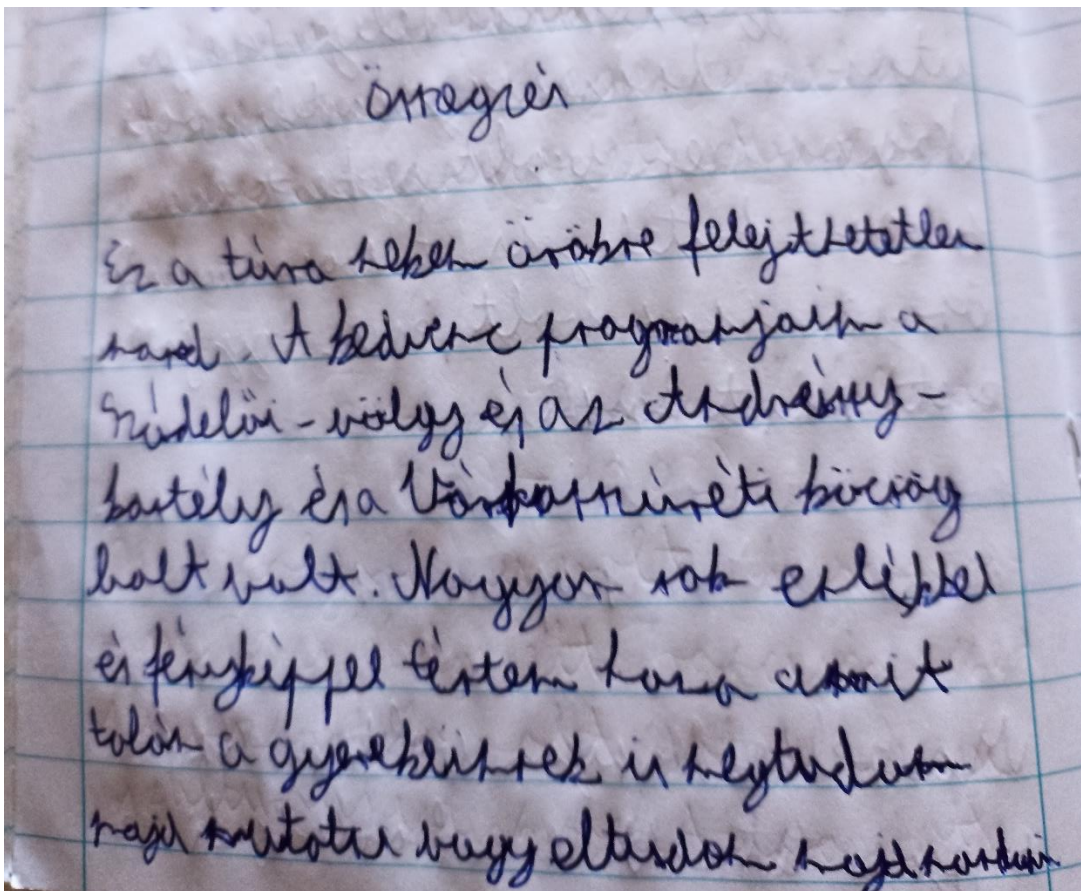 Összegzés
Ez a túra nekem örökre felejthetetlen
marad. A kedvenc programjaim a
Szádelői-völgy és az Andrássy-
kastély és a bücsög
bolt volt. Nagyon sok emlékkel
és fényképpel tértem haza amit
talán a gyerekeimnek is megtudom
majd mutatni vagy eltudok majd mondani